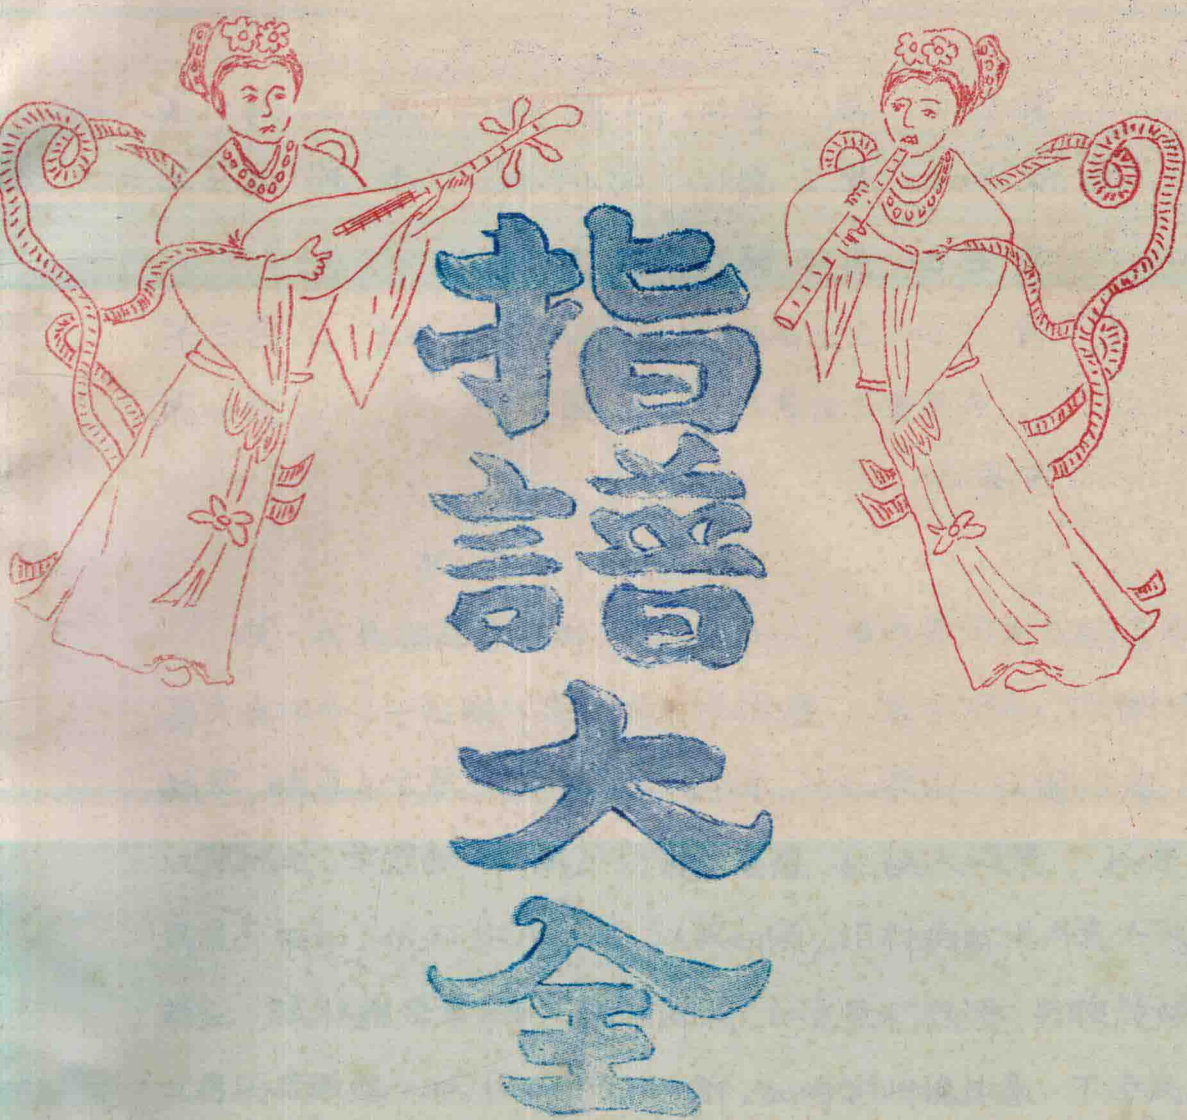 指譜大全